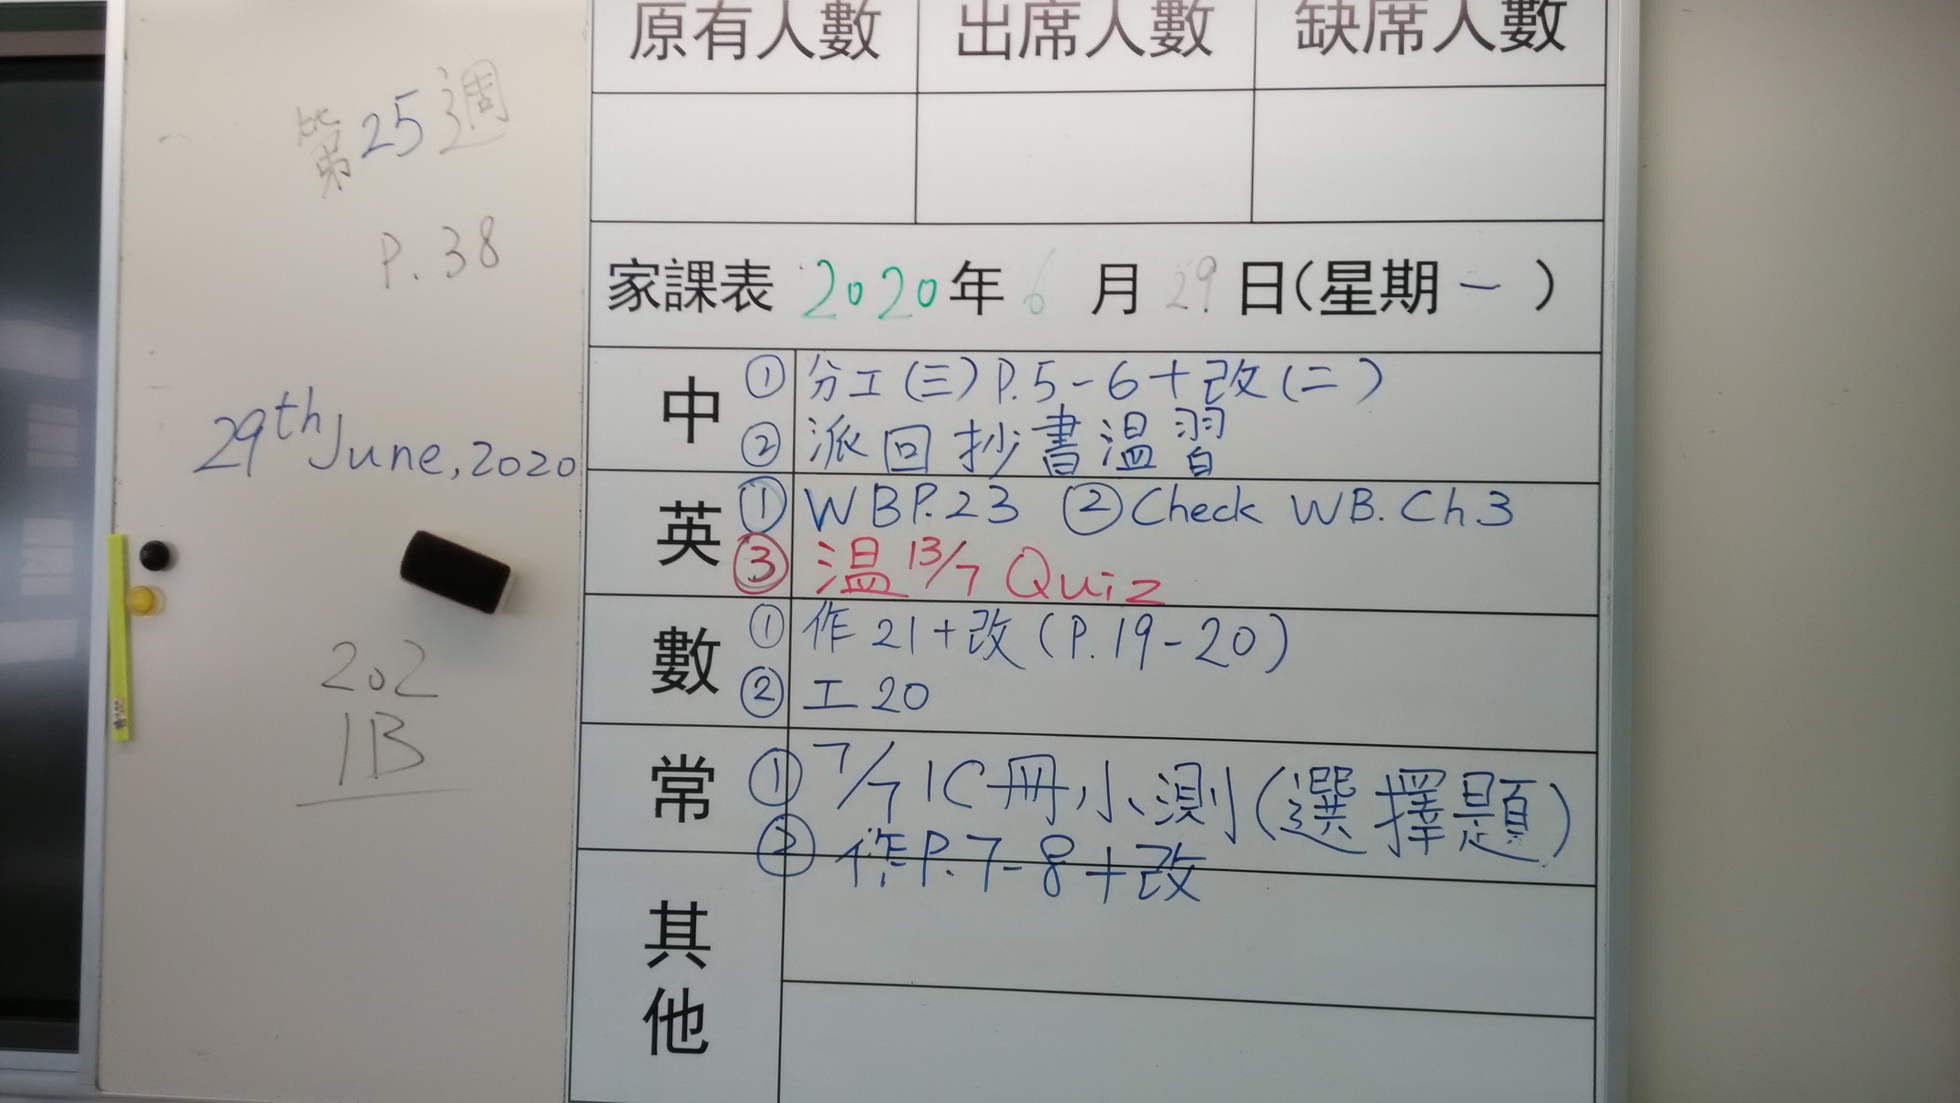 原有人數 出席人數 缺席人數
第25週
P.38
家課表 2020年 6月 29日(星期一)
29th June, 2020
202
1B
中 ① 分工(三)P.5-6+改(二)
② 派回抄書溫習
英 ① WBP.23 ② Check WB. Ch.3
③ 溫 13/7 Quiz
數 ① 作21+改(P.19-20)
② 工20
常 ① 7/7 1C冊小測(選擇題)
② 作P.7-8+改
其他